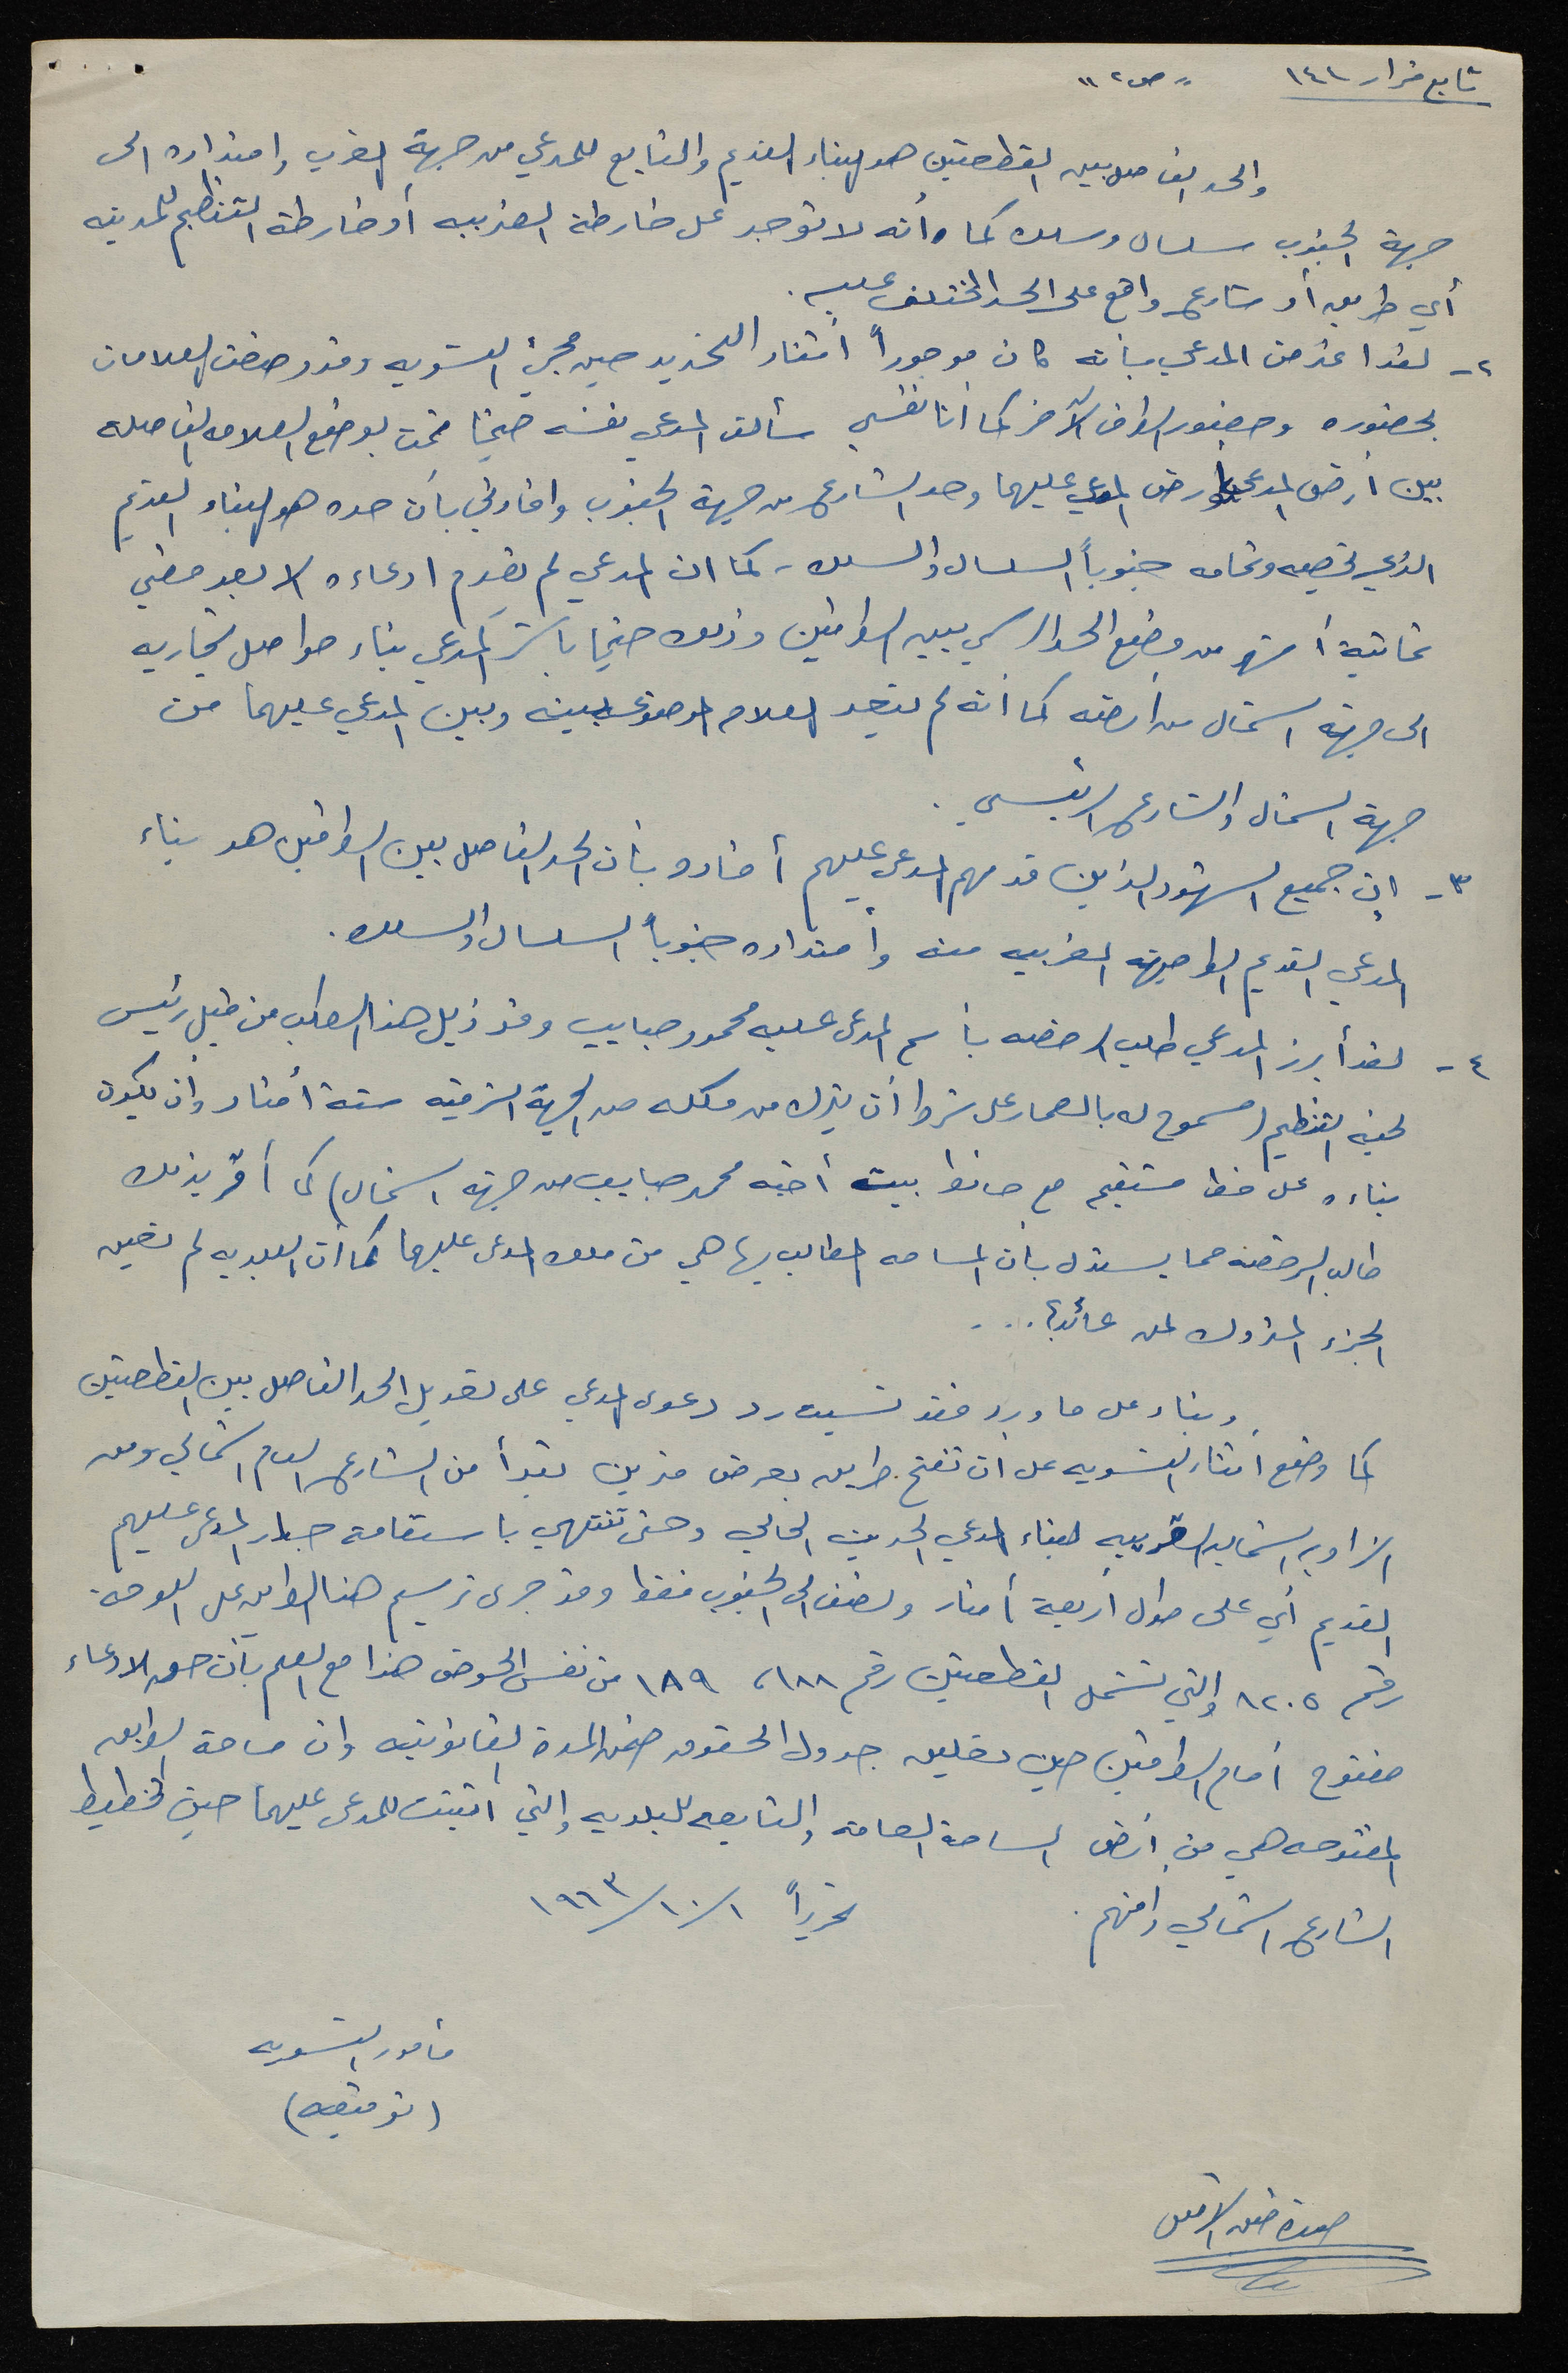 تابع قرار ١٤١ "ص٢"
والحد الفاصل بين القطعتين هو البناء القديم والتابع للمدعي من جهة الغرب وامتداره الى
جهة الجنوب سلسال وسلك كما وأنه لا توجد على خارطة الضريبه أو خارطة التنظيم للمدينه
أي طريق أو شارع واقع على الحد المختلف عليه.
٢- لقد اعترض المدعي بأنه كان موجوراً أثناء التحديد حين مجرى التسويه وقد وضعت العلامات
بحضوره وحضور الطرف الآخر كما أنا نفسي سألت المدعي نفسه حينما قمت بوضع العلامه الفاصله
بين أرض المدعي وارض المدعي عليهما وحد الشارع من جهة الجنوب وافادني بأن حده هو البناء القديم
الذي يخصه وتمامه جنوباً السلسال والسلك - كما ان المدعي لم يقدم ادعاءه الا بعد مضي
ثمانية أشهر من وضع الحد الرسمي بين الطرفين وذلك حينما باشر المدعي بناء حواصل تجاريه
الى جهة الشمال من أرضه كما أنه لم يتعد العلامه الموضوعه بينه وبين المدعي عليهما من
جهة الشمال والشارع الرئيسي.
٣- ان جميع الشهود الذين قدمهم المدعى عليهم أفادوا بأن الحد الفاصل بين الطرفين هو بناء
المدعي القديم الواجهة الغربيه منه وأمتداره جنوباً السلسال والسلك.
٤- لقد أبرز المدعي طلب الرخصه بأسم المدعى عليه محمود حبايب وقد ذيل هذا الطلب من قبل رئيس
لجنة التنظيم (مسموح له بالعمار على شرط أن يترك من ملكه من الجهة الشرقيه ستة أمتار وأن يكون
بناءه على خط مستقيم مع حائط بيت أخيه محمد حبايب من جهة الشمال) كما أقر بذلك
طالب الرخصه مما يستدل بأن المساحه المطالب بها هي من ملك المدعى عليهما كما أن البلديه لم تعين
الجزء المتروك لمن عائد؟...
وبناء على ما ورد فقد نسبت رد دعوى المدعي على تعديل الحد الفاصل بين القطعتين
كما وضع أثناء التسويه على ان تفتح طريق بعرض مترين تبدأ من الشارع العام الشمالي ومن
الزاويه الشماليه الغربيه لبناء المدعي الحديث الحالي وحتى تنتهي باستقامة جدار المدعى عليهم
القديم أي على طول أربعة أمتار ونصف الى الجنوب فقط وقد جرى ترسيم هذا الطريق على اللوحة
رقم ٨٢٠٥ والتي تشمل القطعتين رقم ١٨٨، ١٨٩ من نفس الحوض هذا مع العلم بأن حق الادعاء
مفتوح أمام الطرفين حين تعليق جدول الحقوق ضمن المدة القانونيه وان مساحة الطريق
المفتوحه هي من أرض الساحة العامه والتابعه للبلديه والتي أثبتت للمدعى عليهما حين تخطيط
الشارع الشمالي رافتهم. تحريراً ١/١٠/١٩٦٣
مأمور التسويه
(توقيعه)
صورة طبق الاصل